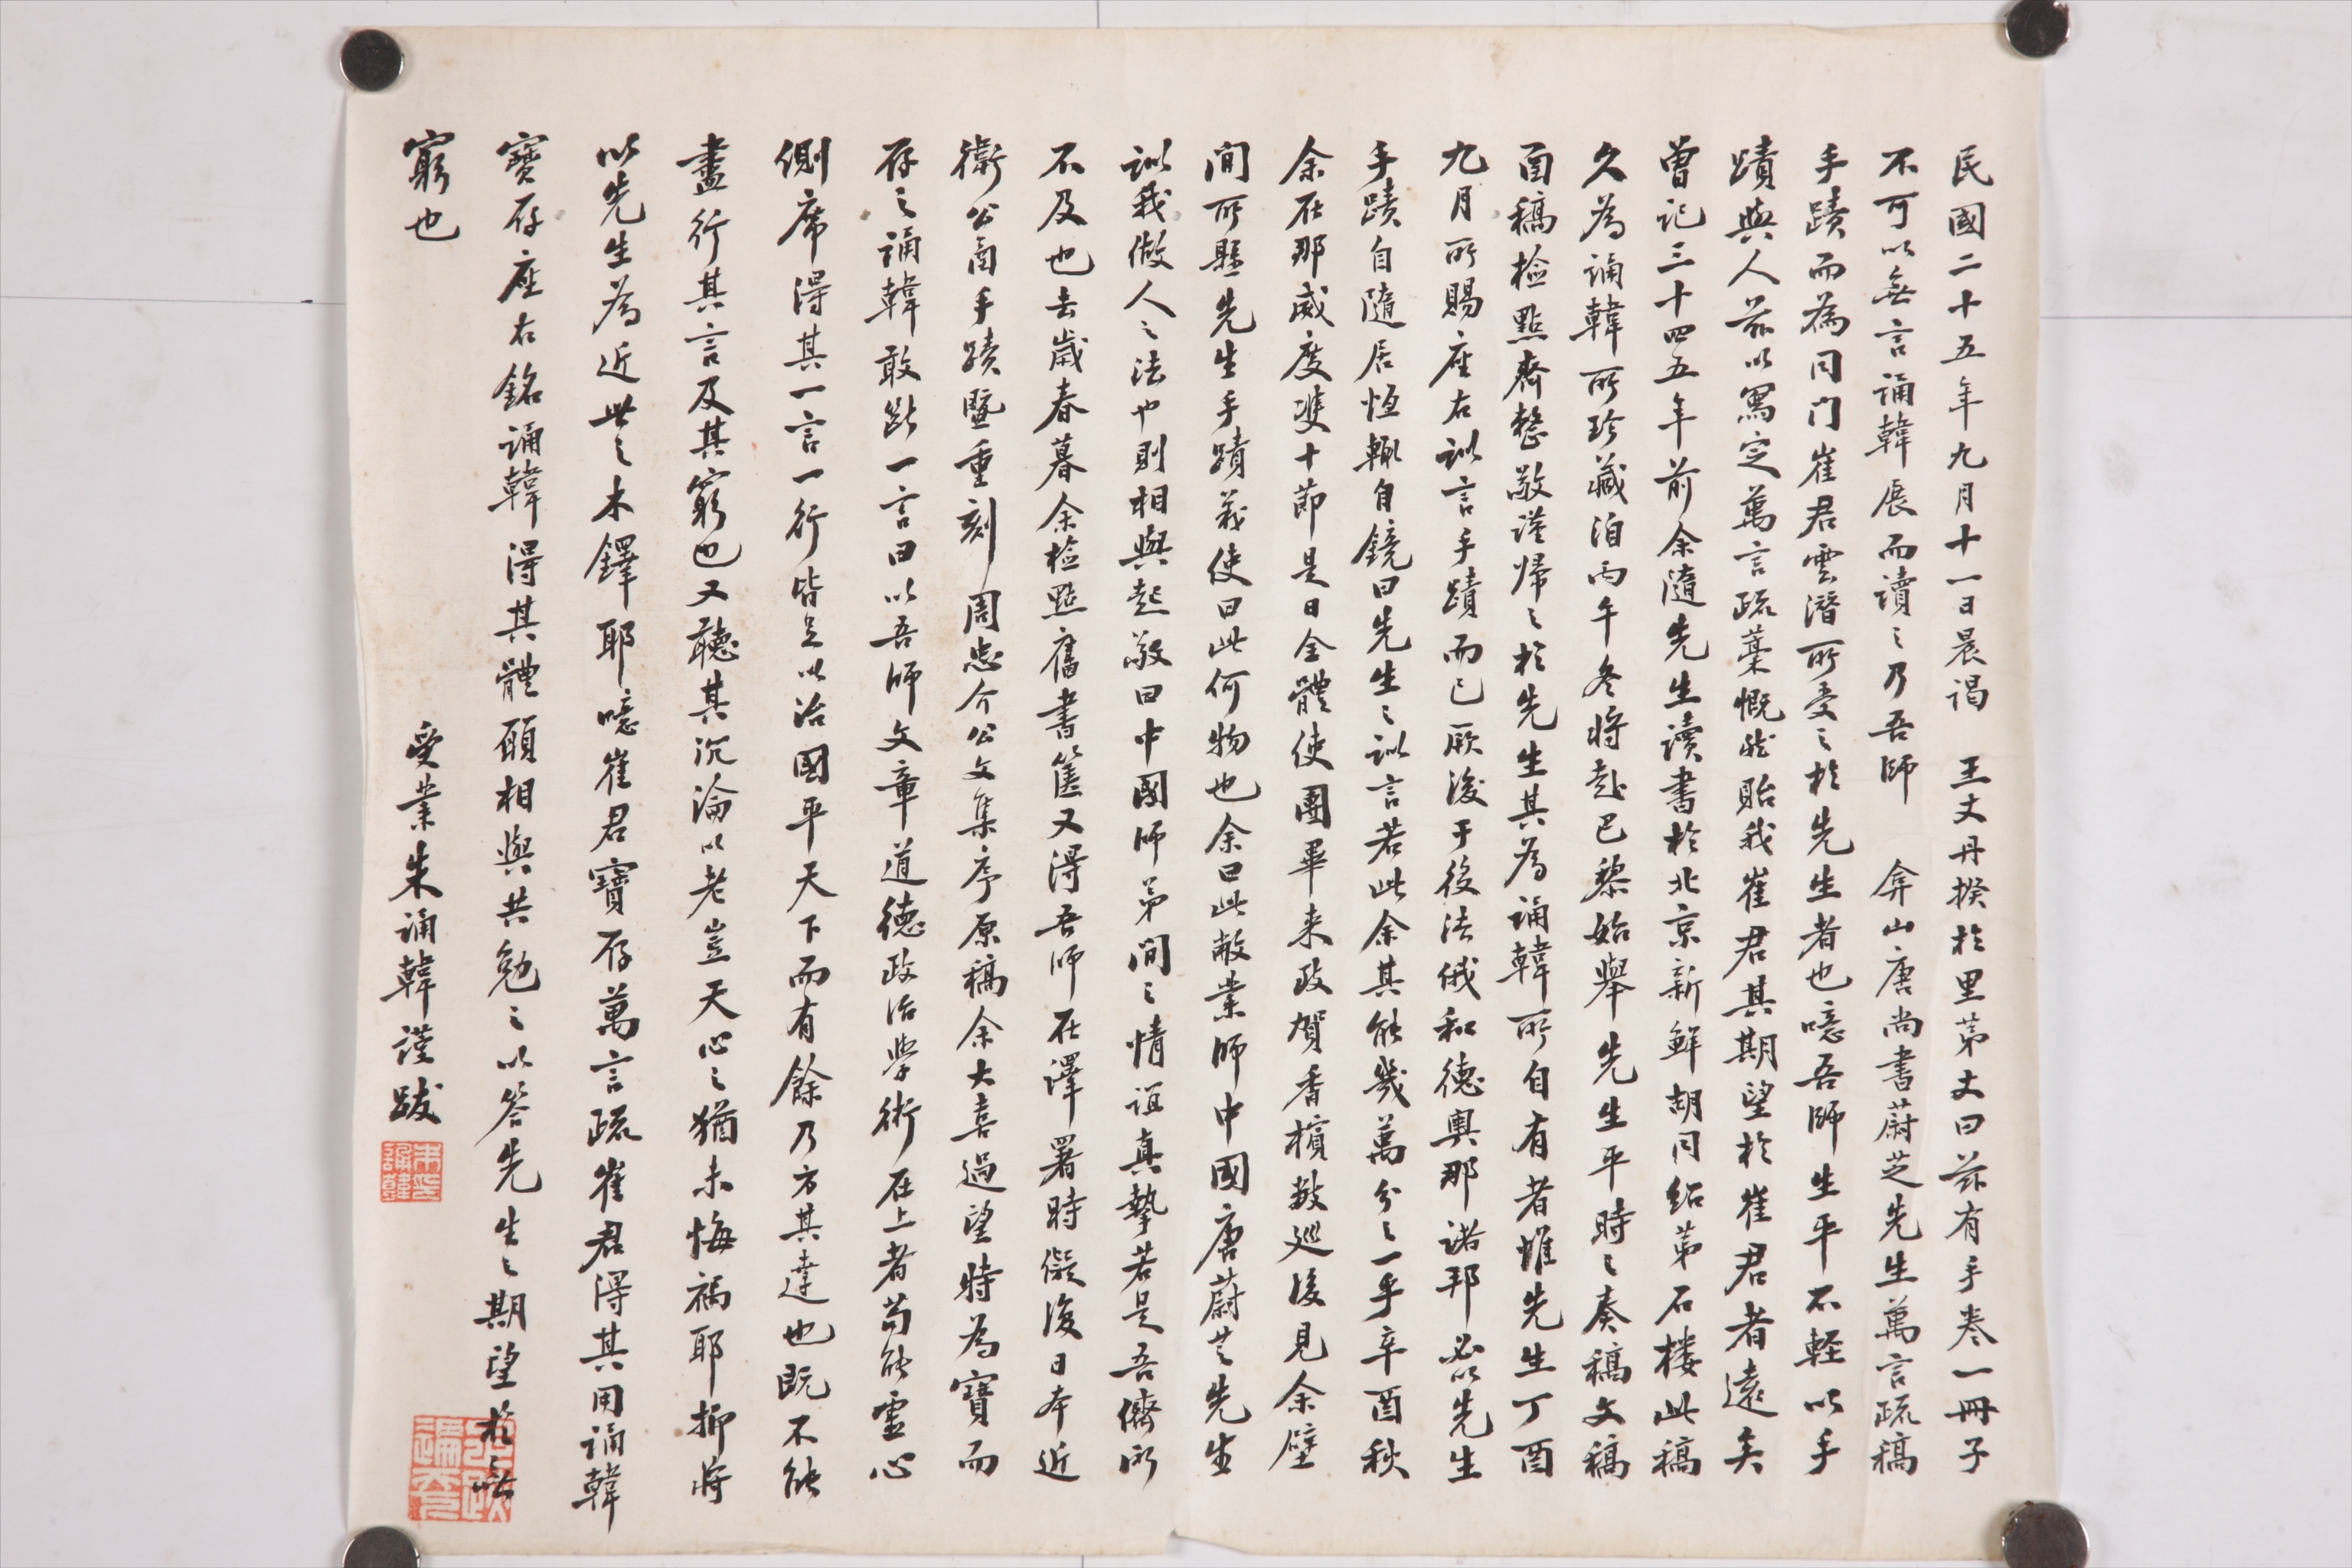 民國二十五年九月十一日晨謁　王丈丹揆於里第丈曰茲有手卷一冊子
不可以無言誦韓展而讀之乃吾師　弇山唐尚書蔚芝先生萬言疏稿
手蹟而為同门崔君雲潛所受之於先生者也噫吾師生平不軽以手
蹟與人茲以寫定萬言疏藁慨然貽我崔君其期望於崔君者遠矣
曾記三十四五年前余隨先生讀書於北京新鮮胡同紹第石楼此稿
久為誦韓所珍藏洎丙午冬将赴巴黎始舉先生平時之奏稿文稿
函稿检點齊整敬谨帰之於先生其為誦韓所自有者惟先生丁酉
九月所賜座右訓言手蹟而已厥後于役法俄和德奥那諾邦必以先生
手蹟自隨居恒輒自鏡曰先生之訓言若此余其能幾萬分之一乎辛酉秋
余在那威度雙十節是日全體使團畢来政賀香檳數巡後見余壁
间所懸先生手蹟義使曰此何物也余曰此敝業師中國唐蔚芝先生
訓我做人之法也則相與起敬曰中國師弟间之情誼真摯若是吾儕所
不及也去歲春暮余检點舊書篋又得吾師在譯署時儗復日本近
衛公函手蹟暨重刻周忠介公文集序原稿余大喜過望特為寶而
存之誦韓敢跋一言曰以吾師文章道德政治學術在上者苟能虛心
側席得其一言一行皆足以治國平天下而有餘乃方其達也既不能
盡行其言及其窮也又聽其沉淪以老豈天心之猶未悔禍耶抑将
以先生為近世之木鐸耶噫崔君寶存萬言疏崔君得其用誦韓
寶存座右銘誦韓得其體願相與共勉之以答先生之期望於無
窮也
受業朱誦韓谨跋
朱印誦韓